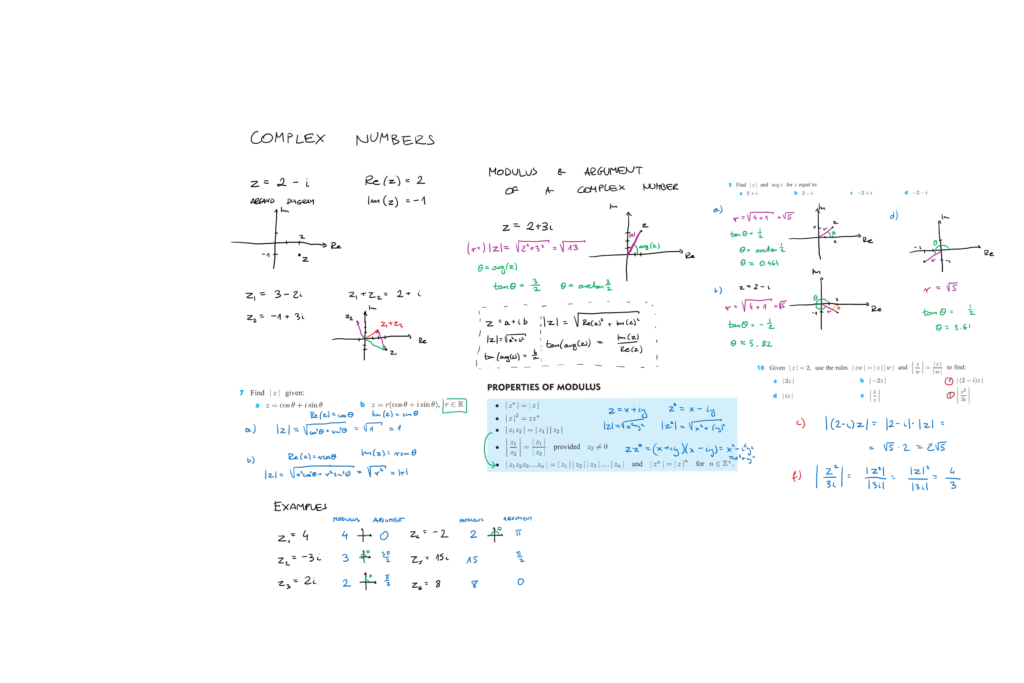 COMPLEX NUMBERS
z = 2 - i
Re(z) = 2
ARGAND DIAGRAM
Im(z) = -1
Im
2
Re
-1
z
z₁ = 3 - 2i
z₁ + z₂ = 2 + i
z₂ = -1 + 3i
Im
z₂
z₁+z₂
Re
z₁
7 Find |z| given:
a z = cos θ + i sin θ
b z = r(cos θ + i sin θ), r ∈ ℝ
Re(z) = cosθ Im(z) = sinθ
a) |z| = √cos²θ + sin²θ = √1 = 1
b) Re(z) = rcosθ Im(z) = rsinθ
|z| = √r²cos²θ + r²sin²θ = √r² = |r|
EXAMPLES
MODULUS ARGUMENT MODULUS ARGUMENT
z₁ = 4 4 0 z₄ = -2 2 π
z₂ = -3i 3 3π/2 z₅ = 15i 15 π/2
z₃ = 2i 2 π/2 z₆ = 8 8 0
MODULUS & ARGUMENT
OF A COMPLEX NUMBER
Im
z = 2+3i
|z|
z
arg(z)
Re
(r=) |z| = √2²+3² = √13
θ = arg(z)
tanθ = 3/2 θ = arctan 3/2
z = a + ib
|z| = √Re(z)² + Im(z)²
|z| = √a²+b²
tan(arg(z)) = Im(z)/Re(z)
tan(arg(z)) = b/a
PROPERTIES OF MODULUS
• |z*| = |z|
• |z|² = zz*
• |z₁z₂| = |z₁||z₂|
• |z₁/z₂| = |z₁|/|z₂| provided z₂ ≠ 0
• |z₁z₂z₃....zₙ| = |z₁||z₂||z₃|....|zₙ| and |zⁿ| = |z|ⁿ for n ∈ ℤ⁺.
z = x+iy z* = x - iy
|z| = √x²+y² |z*| = √x²+(y)²
zz* = (x+iy)(x-iy) = x²-i²y²
= x²+y²
5 Find |z| and arg z for z equal to:
a 2 + i b 2 - i c -2 + i d -2 - i
a) r = √4+1 = √5
tanθ = 1/2
θ = arctan 1/2
θ ≈ 0.464
Im
z
r
θ
2
Re
b) z = 2 - i
r = √4+1 = √5
tanθ = -1/2
θ ≈ 5.82
Im
θ
Re
d)
Im
-2
θ
Re
r
-1
r = √5
tanθ = 1/2
θ ≈ 3.61
10 Given |z| = 2, use the rules |zw| = |z||w| and |z/w| = |z|/|w| to find:
a |3z| b |-2z| c |(2 - i)z|
d |iz| e |1/z| f |z²/3i|
c) |(2-i)z| = |2-i|·|z| =
= √5 · 2 = 2√5
f) |z²/3i| = |z²|/|3i| = |z|²/|3i| = 4/3